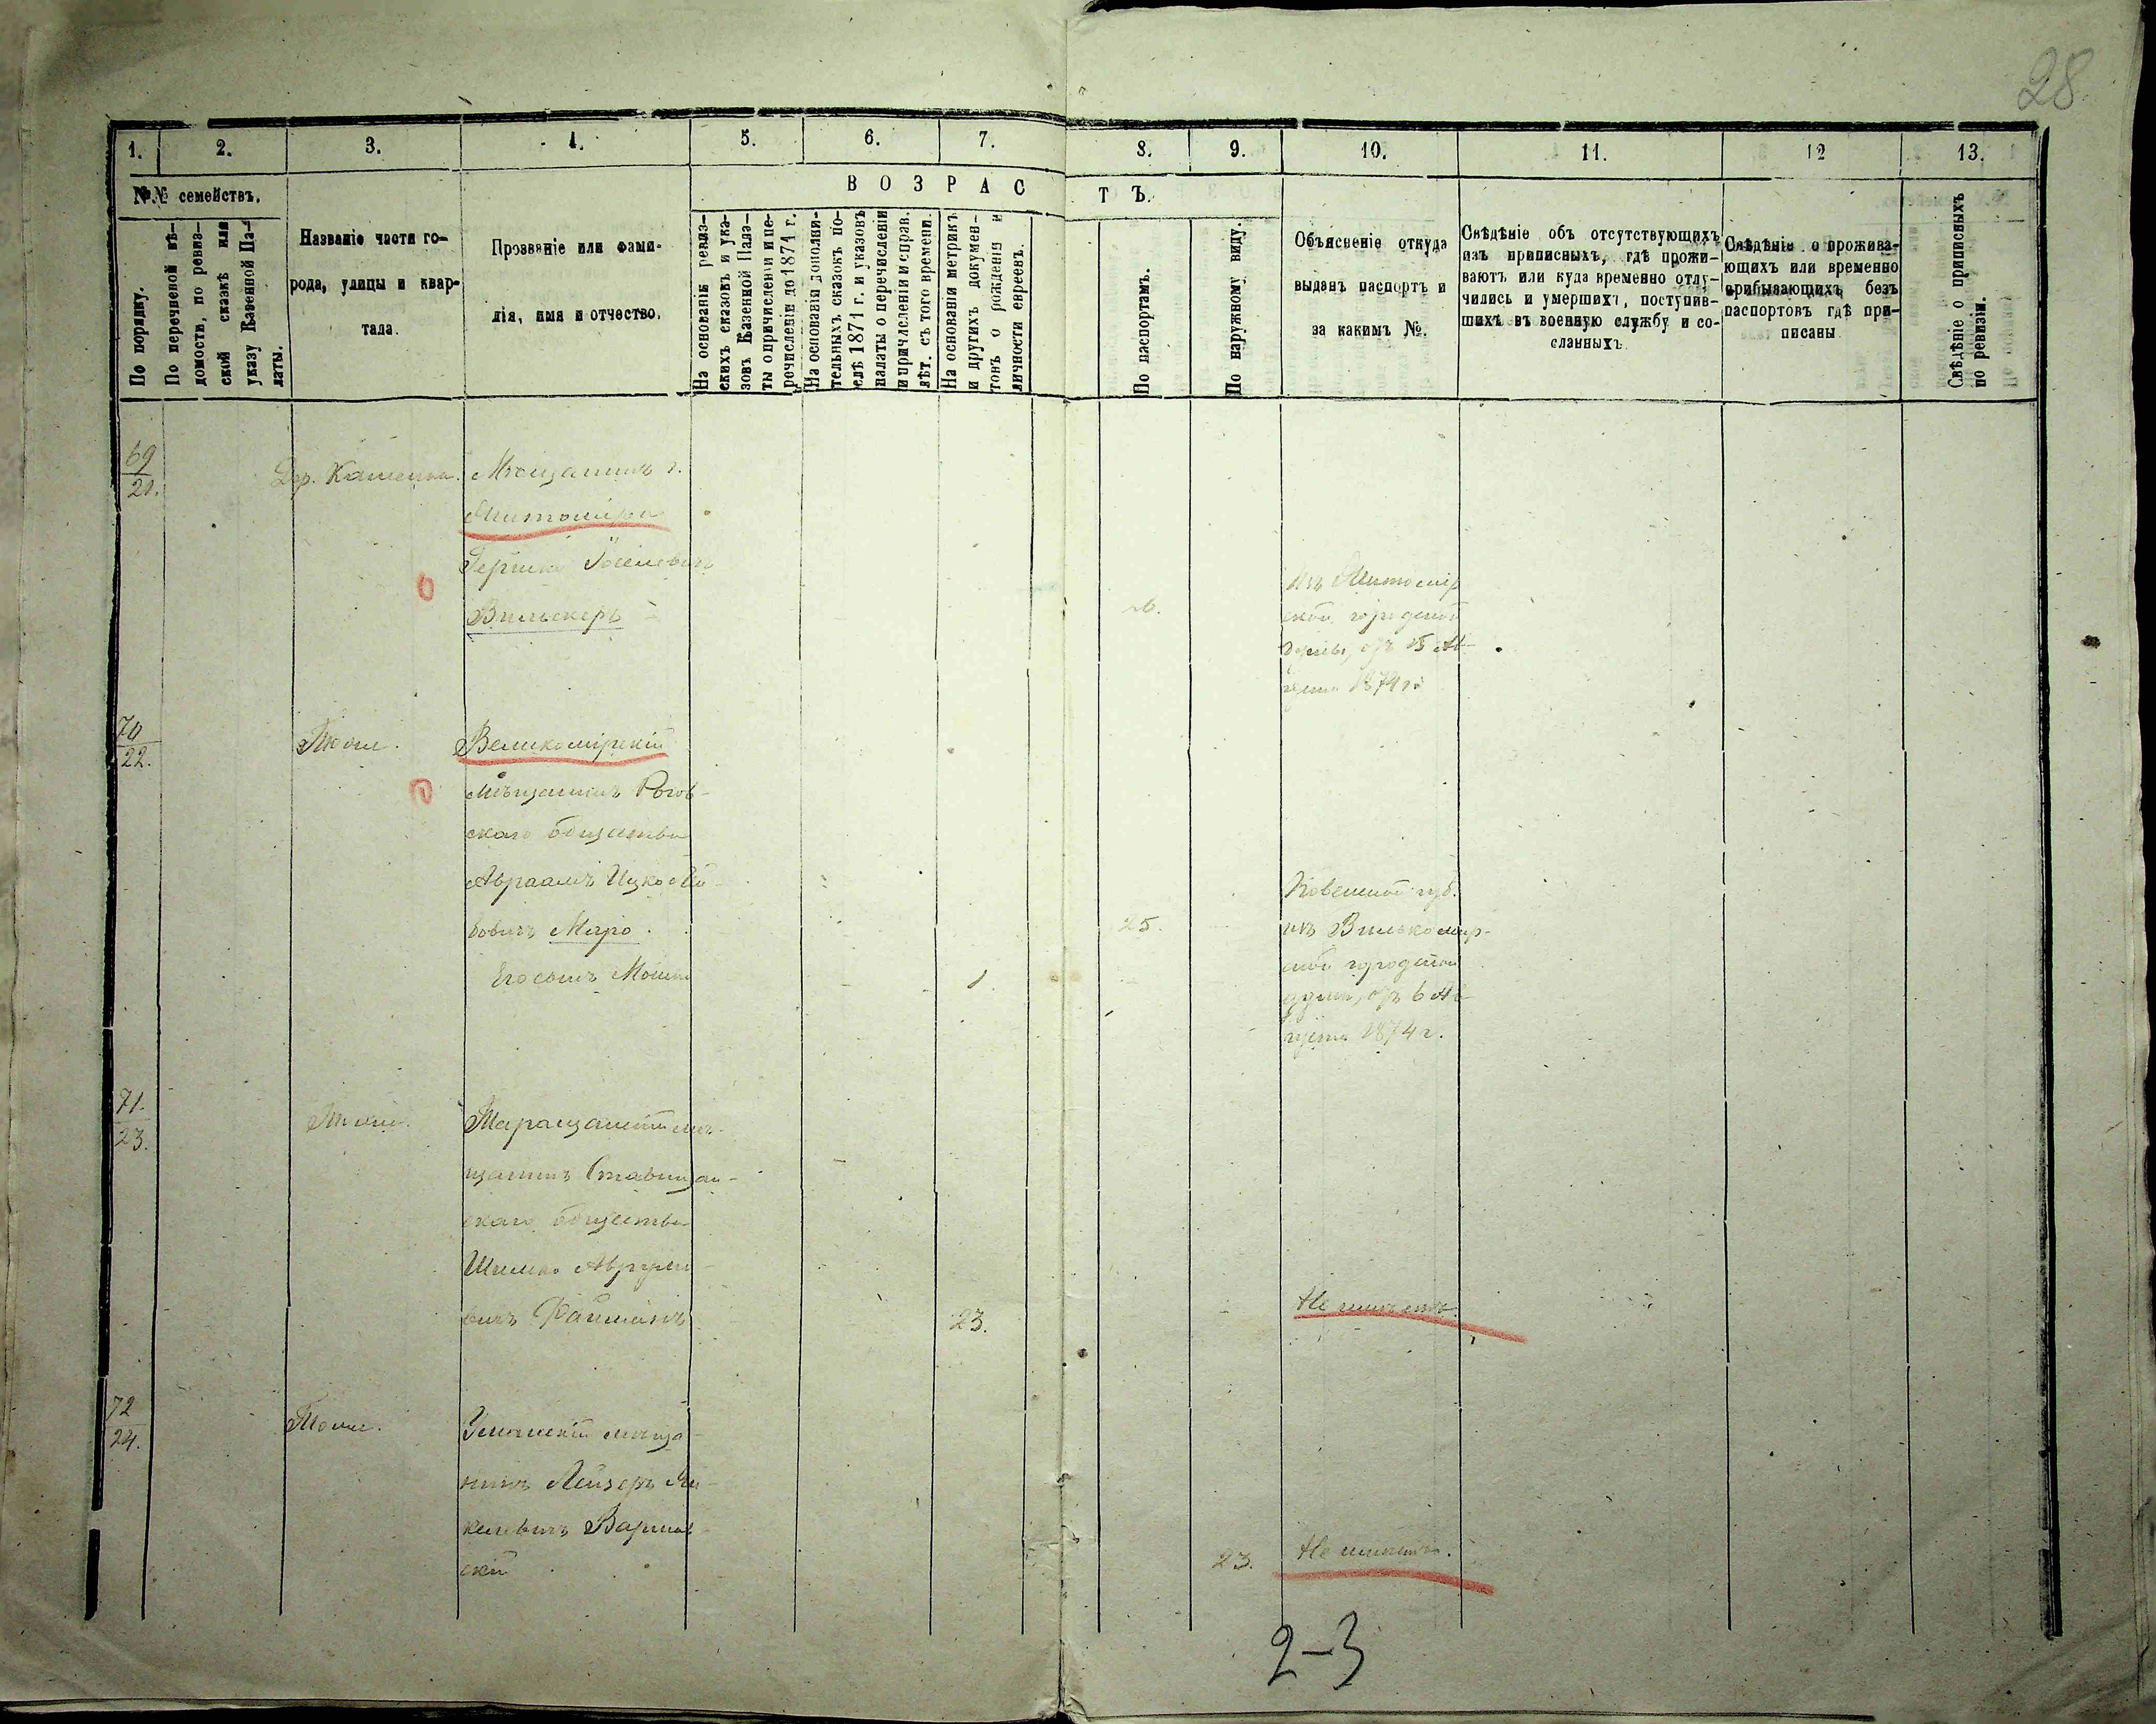 28
1. 2. 3. 4. 5. 6. 7. 8. 9. 10. 11. 12 13.
№№ семействъ.
По порядку.
По перечневой вѣ-
домости, по ревиз-
ской сказкѣ или
указу Казенной Па-
латы.
Названіе части го-
рода, улицы и квар-
тала.
Прозваніе или фами-
лія, имя и отчество.
ВОЗРАСТЪ.
На основаніи ревиз-
скихъ сказокъ и ука-
зовъ Казенной Пала-
ты о причисленіи и пе-
речисленіи до 1871 г.
На основаніи дополни-
тельныхъ сказокъ по-
слѣ 1871 г. и указовъ
палаты о перечисленіи
и причисленіи и справ.
лѣт. съ того времени.
На основаніи метрикъ
и другихъ докумен-
товъ о рожденіи и
личности евреевъ.
По паспортамъ.
По наружному виду.
Объясненіе откуда
выданъ паспортъ и
за какимъ №.
Свѣдѣніе объ отсутствующихъ
изъ приписныхъ, гдѣ прожи-
ваютъ или куда временно отлу-
чились и умершихъ, поступив-
шихъ въ военную службу и со-
сланныхъ
Свѣдѣніе о прожива-
ющихъ или временно
прибывающихъ безъ
паспортовъ гдѣ при-
писаны
Свѣдѣніе о приписныхъ
по ревизіи.
69
21.
Дер. Каменка.
Мѣщанинъ г.
Житоміра
Гершко Іоселевичъ
Вильскеръ
26.
Изъ Житомір
ской городской
думы, отъ 15 Ав-
густа 1874 г.
70
22.
Тоже.
Великомірскій
мѣщанинъ Рогов-
скаго общества
Авраамъ Ицко Лей-
бовичъ Миро
25.
Ковенской губ.
изъ Вилькомир-
ской городской
думы, отъ 6 Ав-
густа 1874 г.
Его сынъ Мошко
1
71.
23.
Тоже.
Таращанскій мѣ-
щанинъ Ставищан-
скаго общества
Шимко Аврумо-
вичъ Файнштейнъ
23.
Не имѣетъ.
72
24.
Тоже.
Уманскій мѣща-
нинъ Лейзеръ Ян-
келевичъ Варшав
скій
23.
Не имѣетъ.
2-3